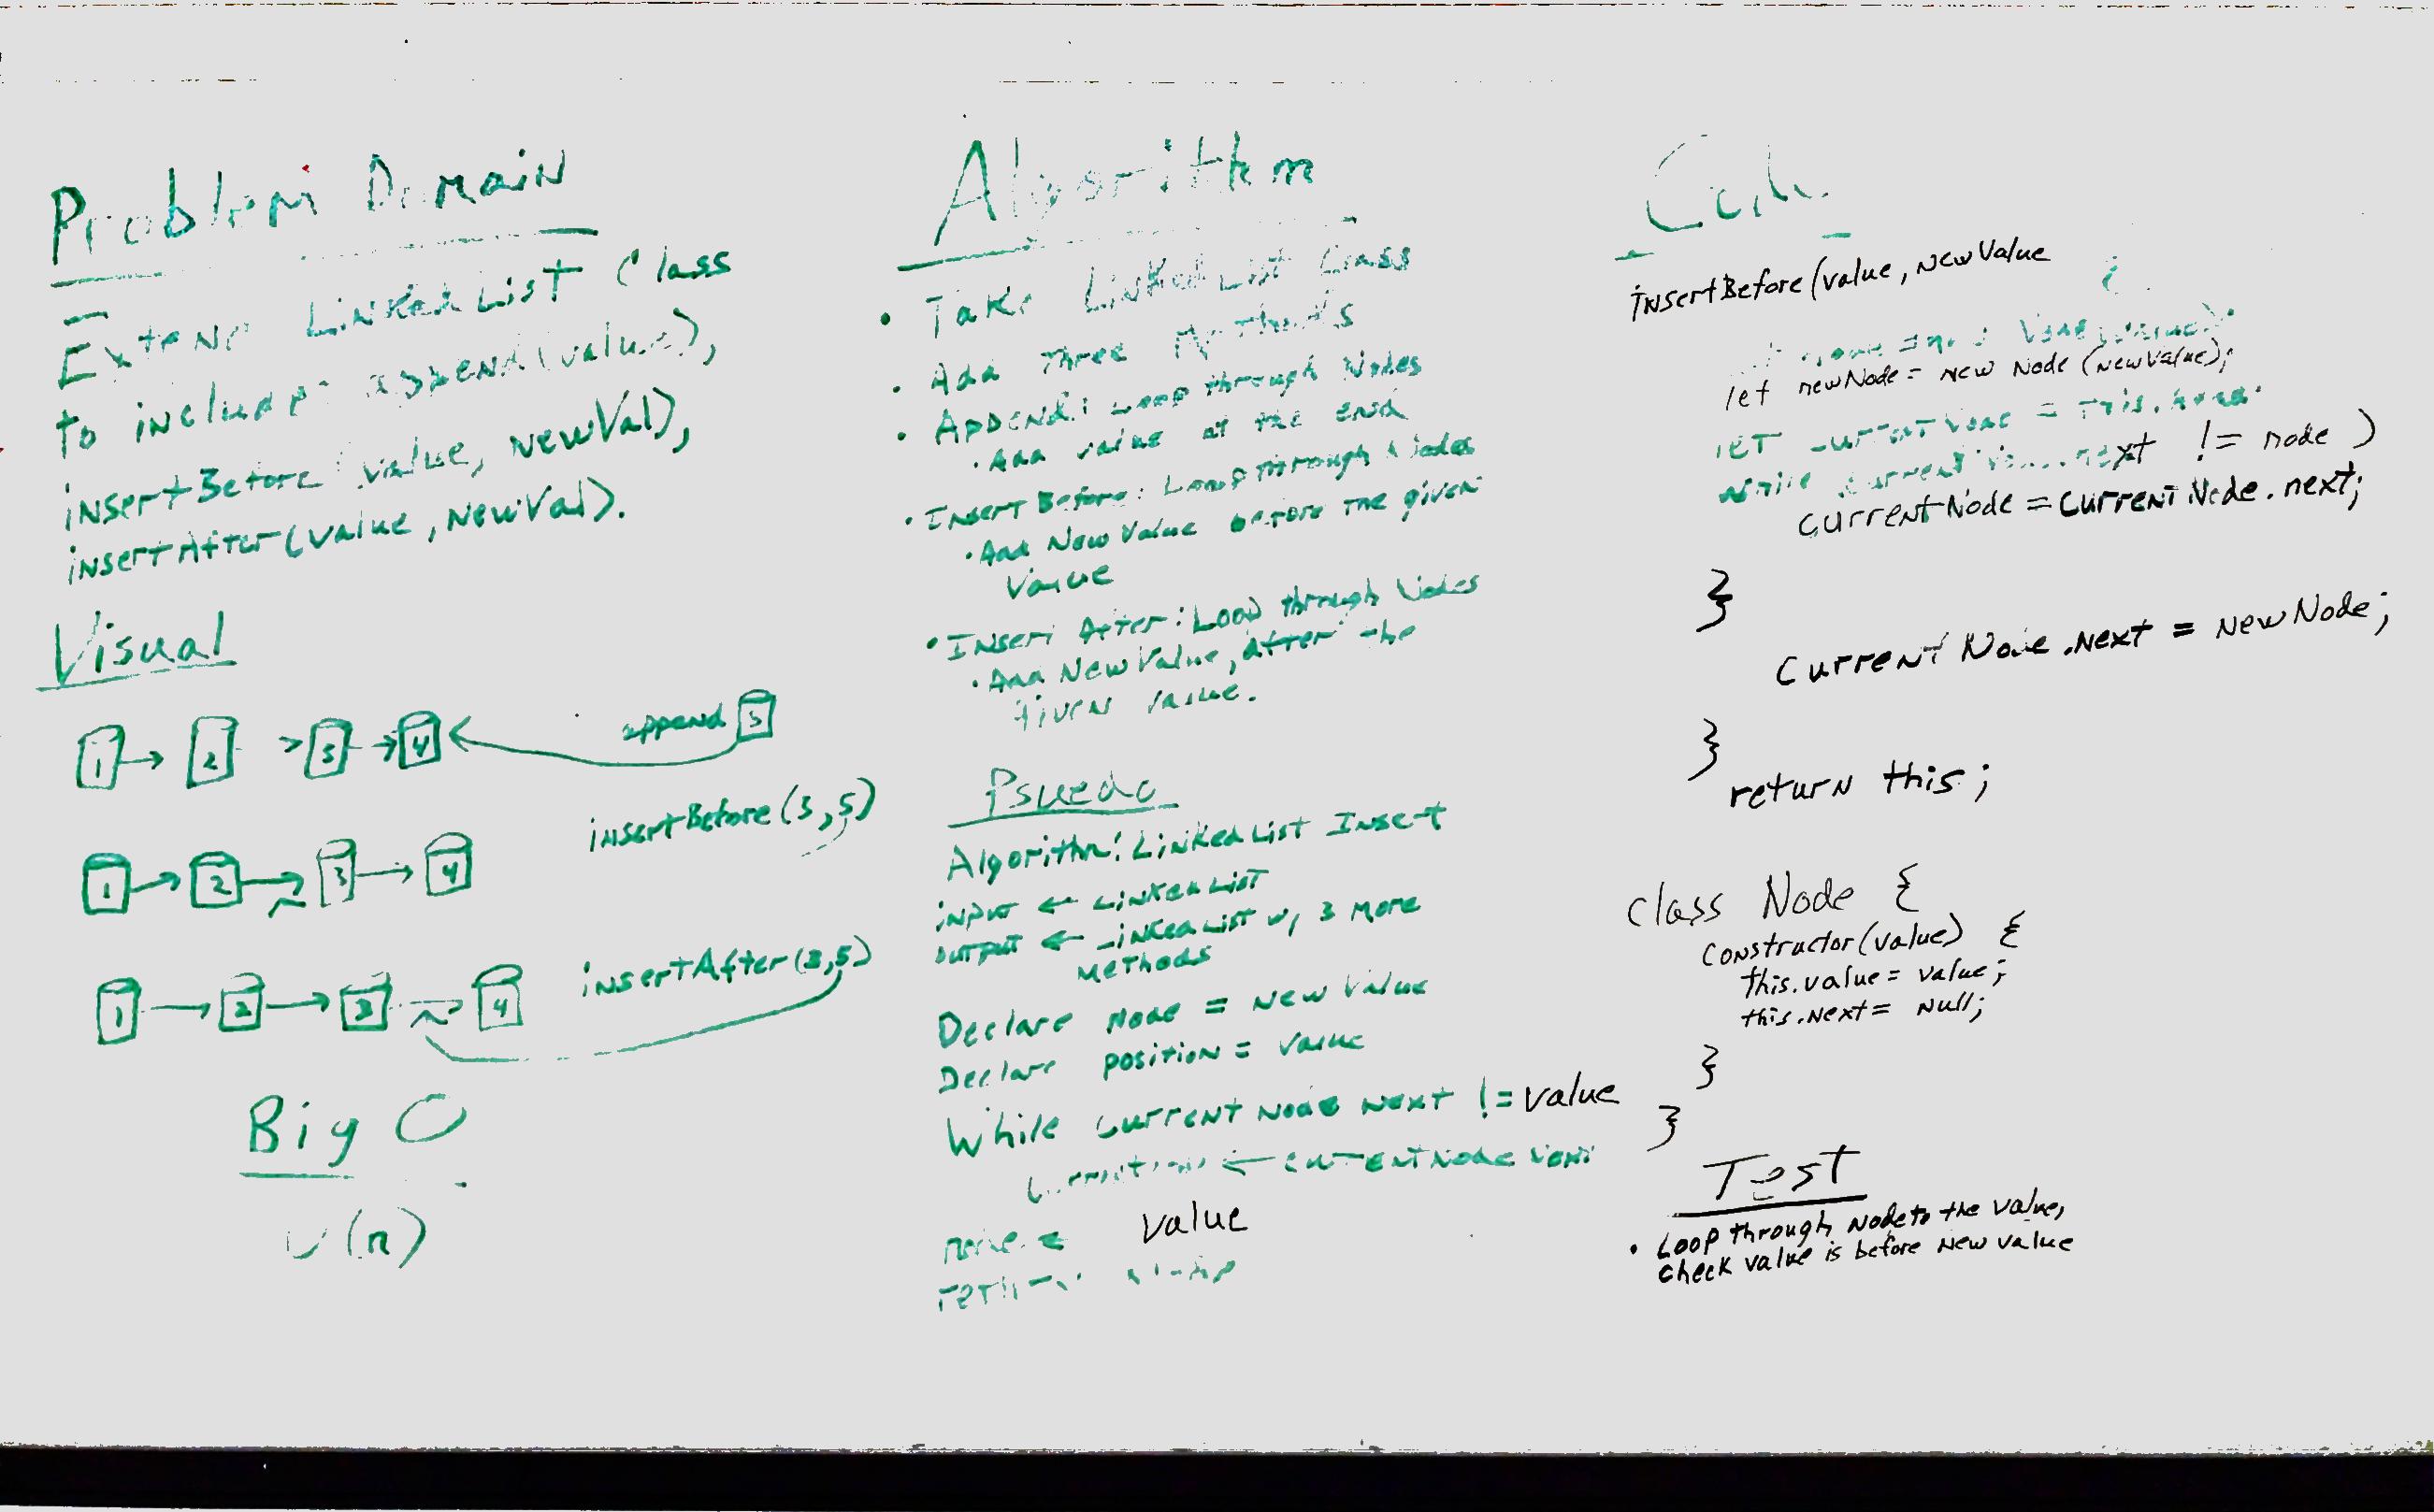 Problem Domain
Extend Linked List Class
to include: append(value),
insertBefore(value, newVal),
insertAfter(value, newVal).
Visual
1 → 2 > 3 → 4 append 5
insertBefore(3,5)
1 → 2 → 3 → 4
insertAfter(3,5)
1 → 2 → 3 → 4
Big O
(n)
Algorithm
• Take Linked List Class
• Add Three Methods
• Append: Loop through Nodes
• Add value at the end
• Insert Before: Loop through Nodes
• Add New Value before the given
Value
• Insert After: Loop through Nodes
• Add New Value, after the
given value.
Psuedo
Algorithm: Linked List Insert
input ← Linked List
output ← Linked List w/ 3 more
methods
Declare Node = New Value
Declare position = Value
While current Node Next != value
← current Node Next
node ← value
return
Code
insertBefore(value, newValue {
let newNode = new Node (newValue);
let currentNode = this.head
while currentNode.next != node )
currentNode = currentNode.next;
}
currentNode.next = newNode;
}
return this;
class Node {
constructor(value) {
this.value = value;
this.next = null;
}
}
Test
• Loop through node to the value,
check value is before new value